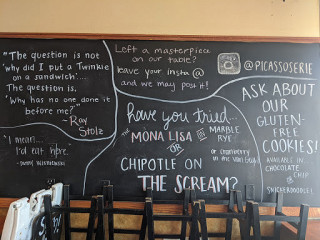 "The question is not
"why did I put a Twinkie
on a sandwich'....
The question is,
'Why has no one done it
before me?"
- Ray
Stolz
"I mean...
I'd eat here."
Left a masterpiece
on our table?
leave your insta @
and we may post it!
@PICASSOSERIE
have you tried...
THE MONA LISA ON MARBLE
RYE
OR
or cranberry
CHIPOTLE ON
THE SCREAM?
ASK ABOUT
OUR
GLUTEN-
FREE
COOKIES!
AVAILABLE IN
CHOCOLATE
CHIP
&
SNICKERDOODLE!